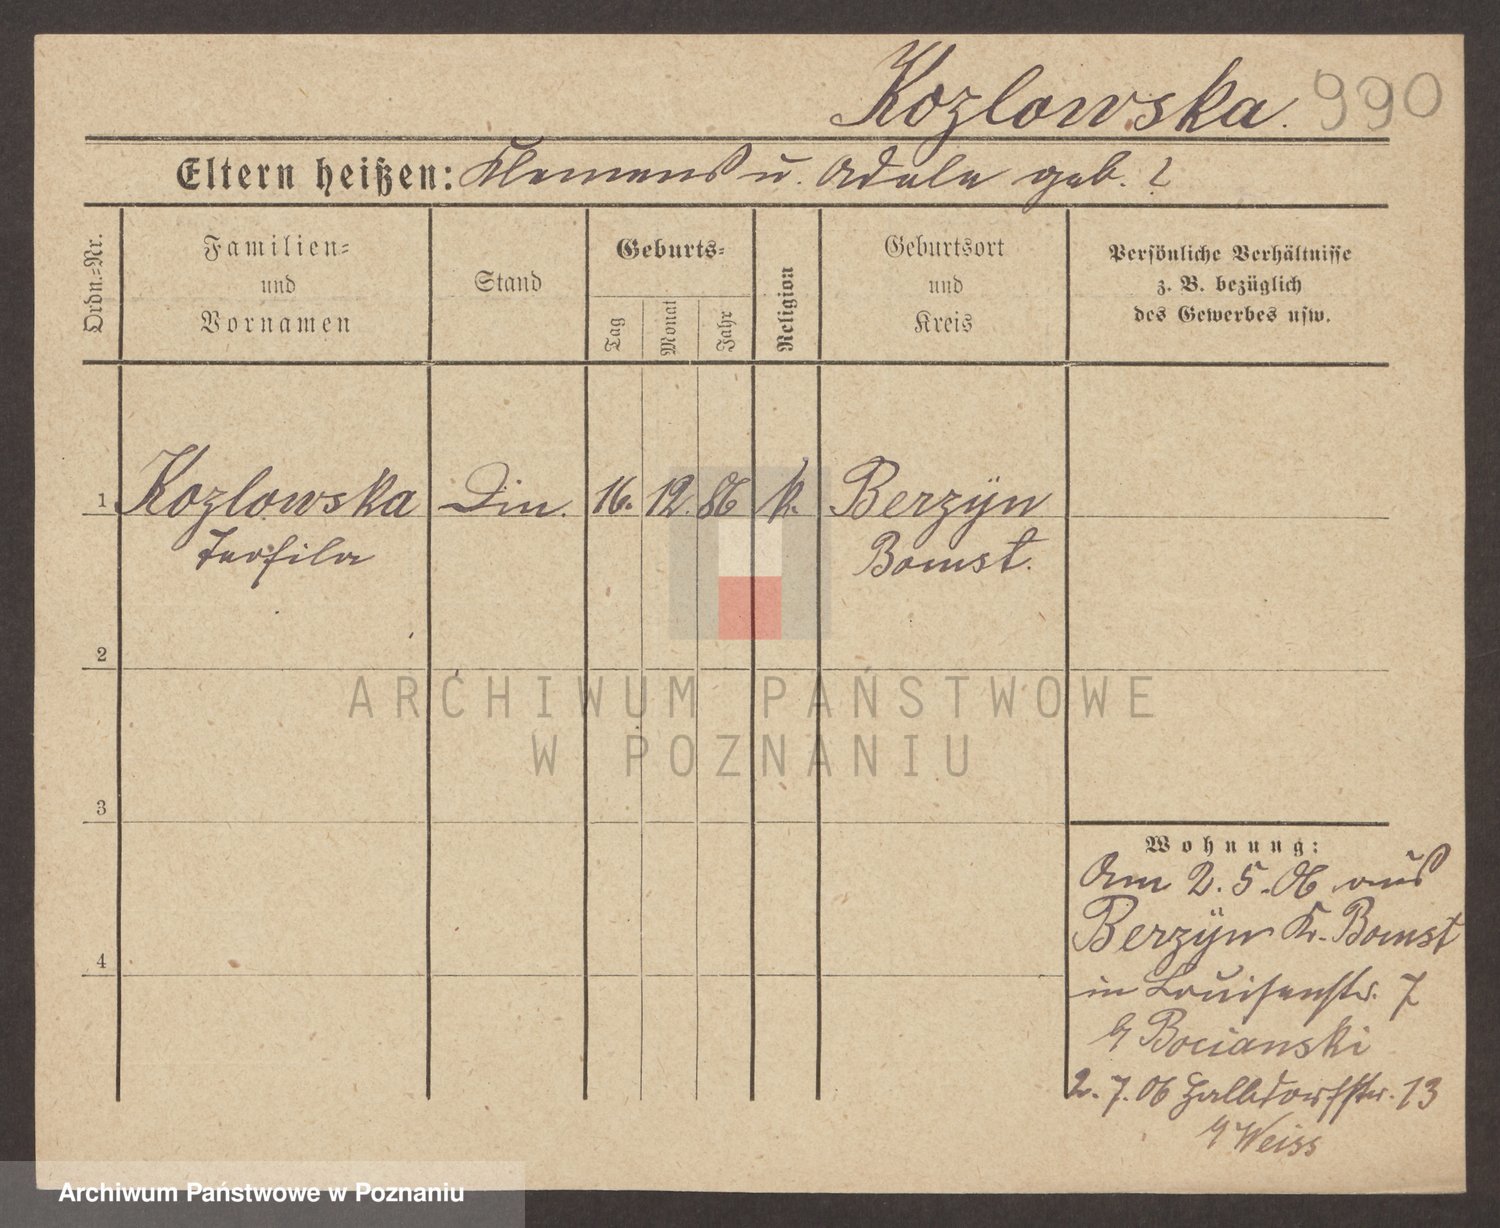 Kozlowska. 990
Eltern heißen: Klemens u. Adele geb. ?
Ordn.-Nr.
Familien-
und
Vornamen
Stand
Geburts-
Tag
Monat
Jahr
Religion
Geburtsort
und
Kreis
Persönliche Verhältnisse
z. B. bezüglich
des Gewerbes usw.
1 Kozlowska Din. 16. 12. 86 k. Berzyn
Teofila Bomst.
2
ARCHIWUM PAŃSTWOWE
W POZNANIU
3
Wohnung:
Am 2. 5. 06 aus
Berzyn Kr. Bomst
4
in Louisenstr. 7
Bocianski
2. 7. 06 Halbdorfstr. 13
Weiss
Archiwum Państwowe w Poznaniu